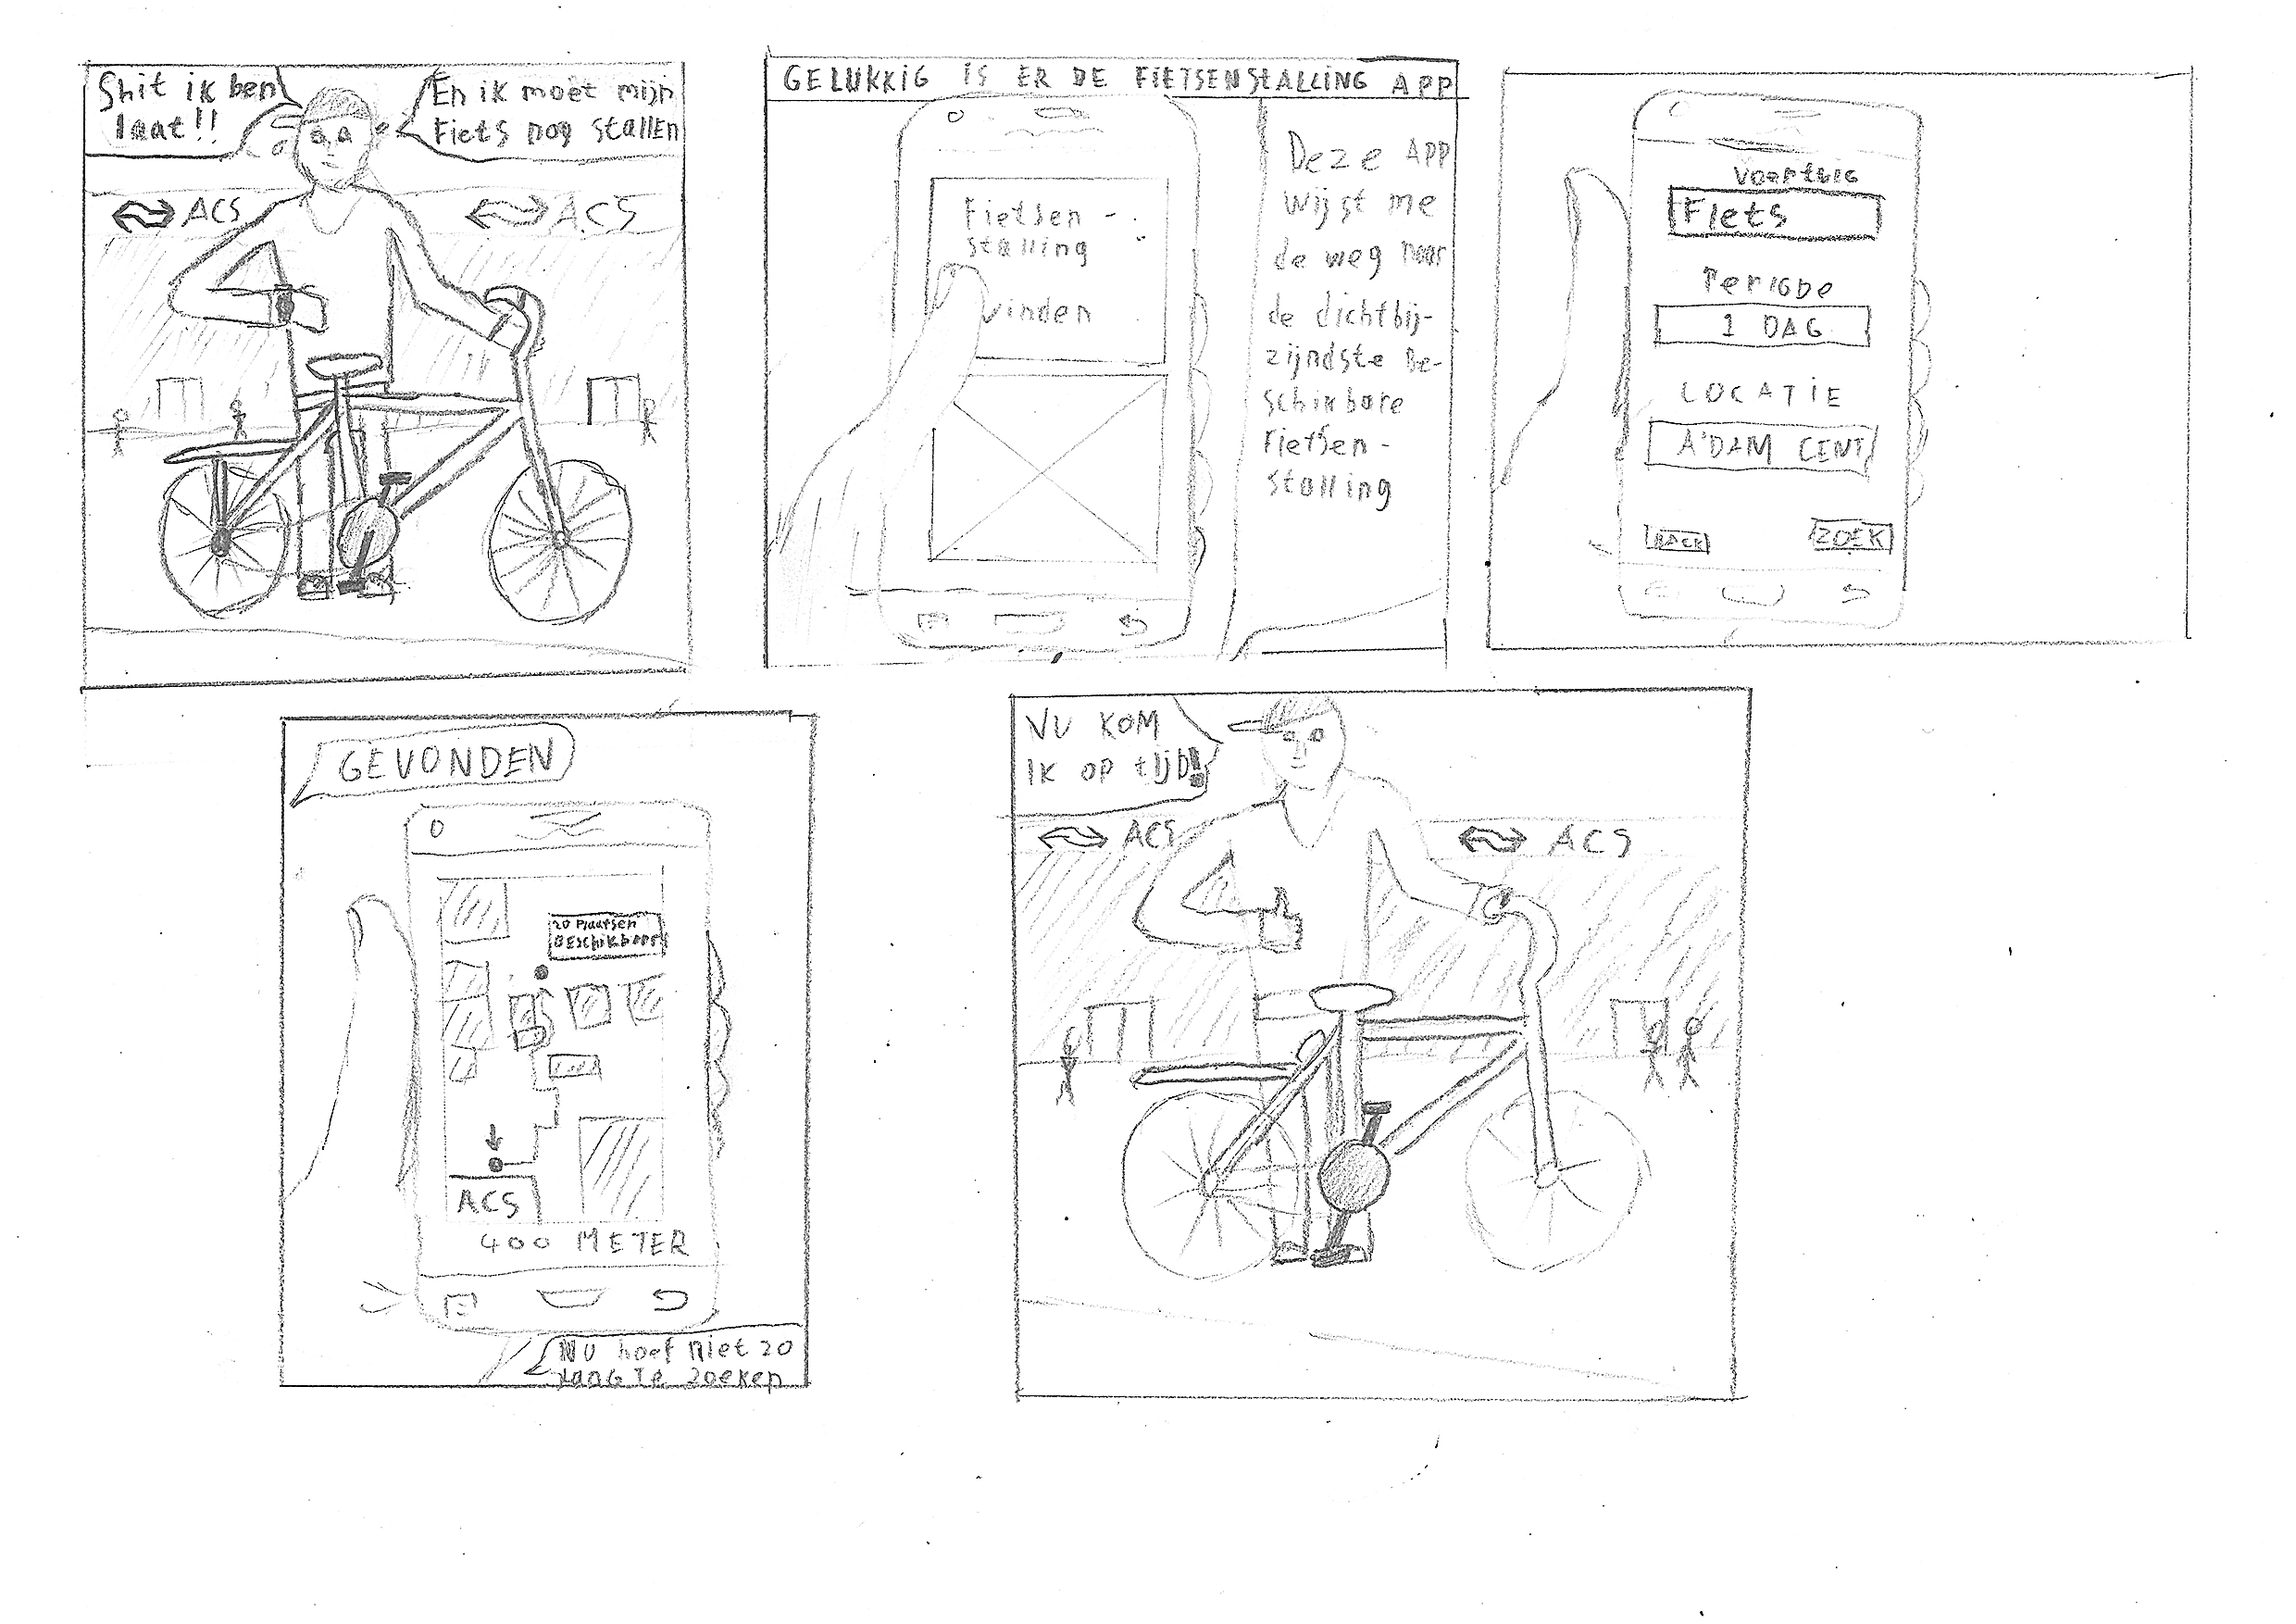 Shit ik ben
laat!!
En ik moet mijn
Fiets nog stallen
ACS
ACS
GELUKKIG IS ER DE FIETSENSTALLING APP
Fietsen-
stalling
vinden
Deze APP
wijst me
de weg naar
de dichtbij-
zijndste Be-
schikbare
Fietsen-
stalling
Voertuig
Fiets
Periode
1 DAG
LOCATIE
A'DAM CENT
BACK
ZOEK
GEVONDEN
20 Plaatsen
Beschikbaar
ACS
400 METER
NU hoef niet zo
lang te zoeken
NU KOM
IK OP tijd!
ACS
ACS